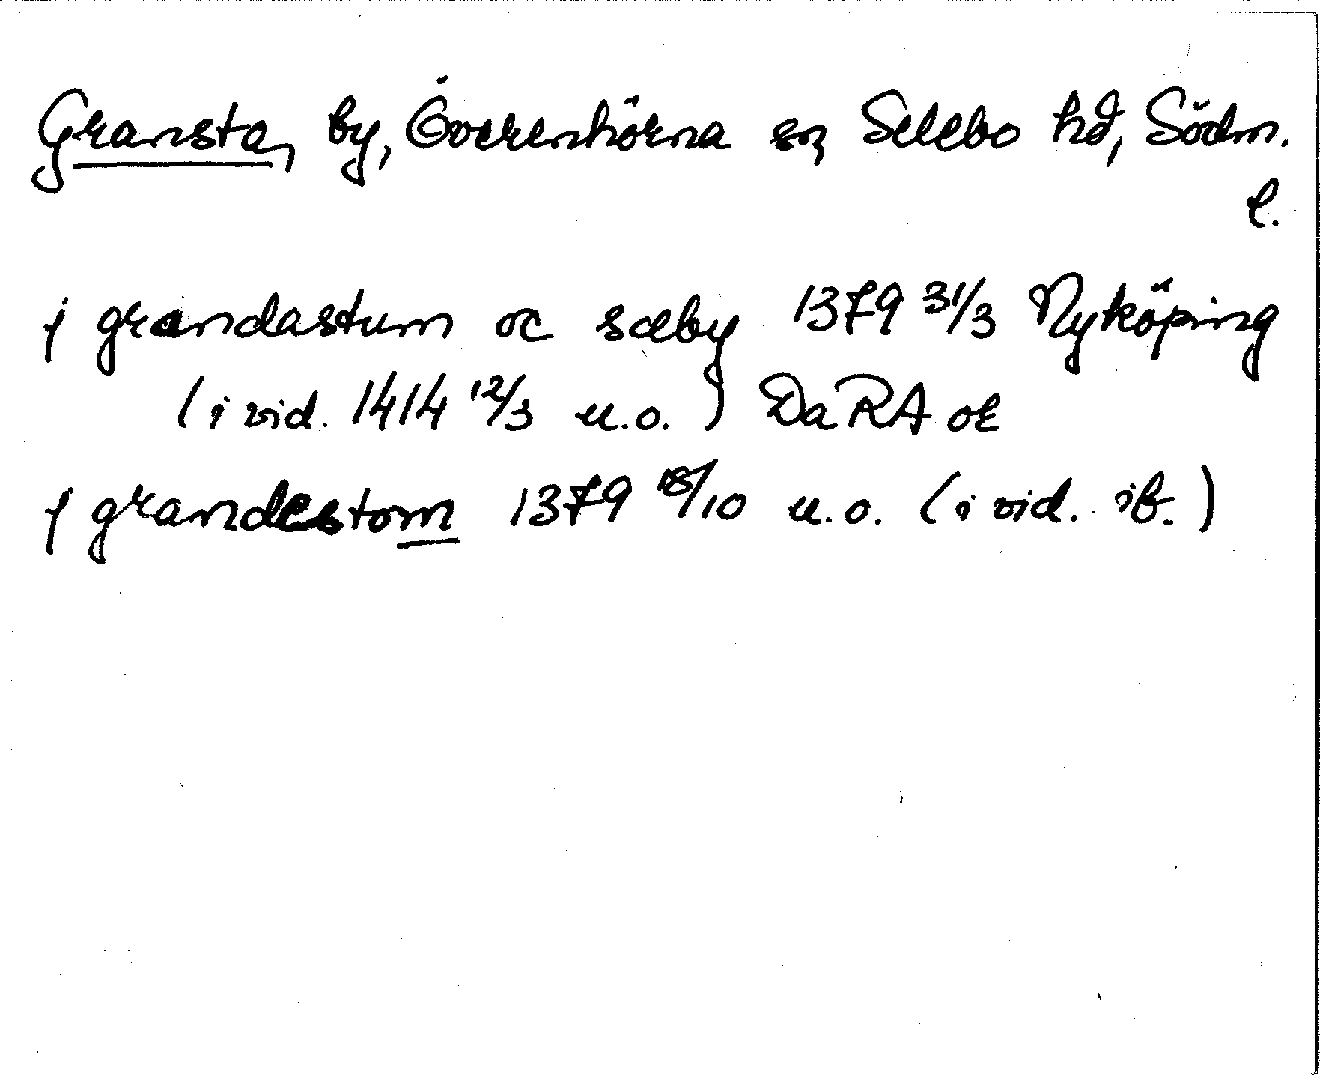 Gransta, by, Överenhörna sn, Selebo hd, Södm.
l.
j grandastum oc sæby 1379 31/3 Nyköping
(i vid. 1414 12/3 u.o.) Da RA or
j grandestom 1379 18/10 u.o. (i vid. ib.)